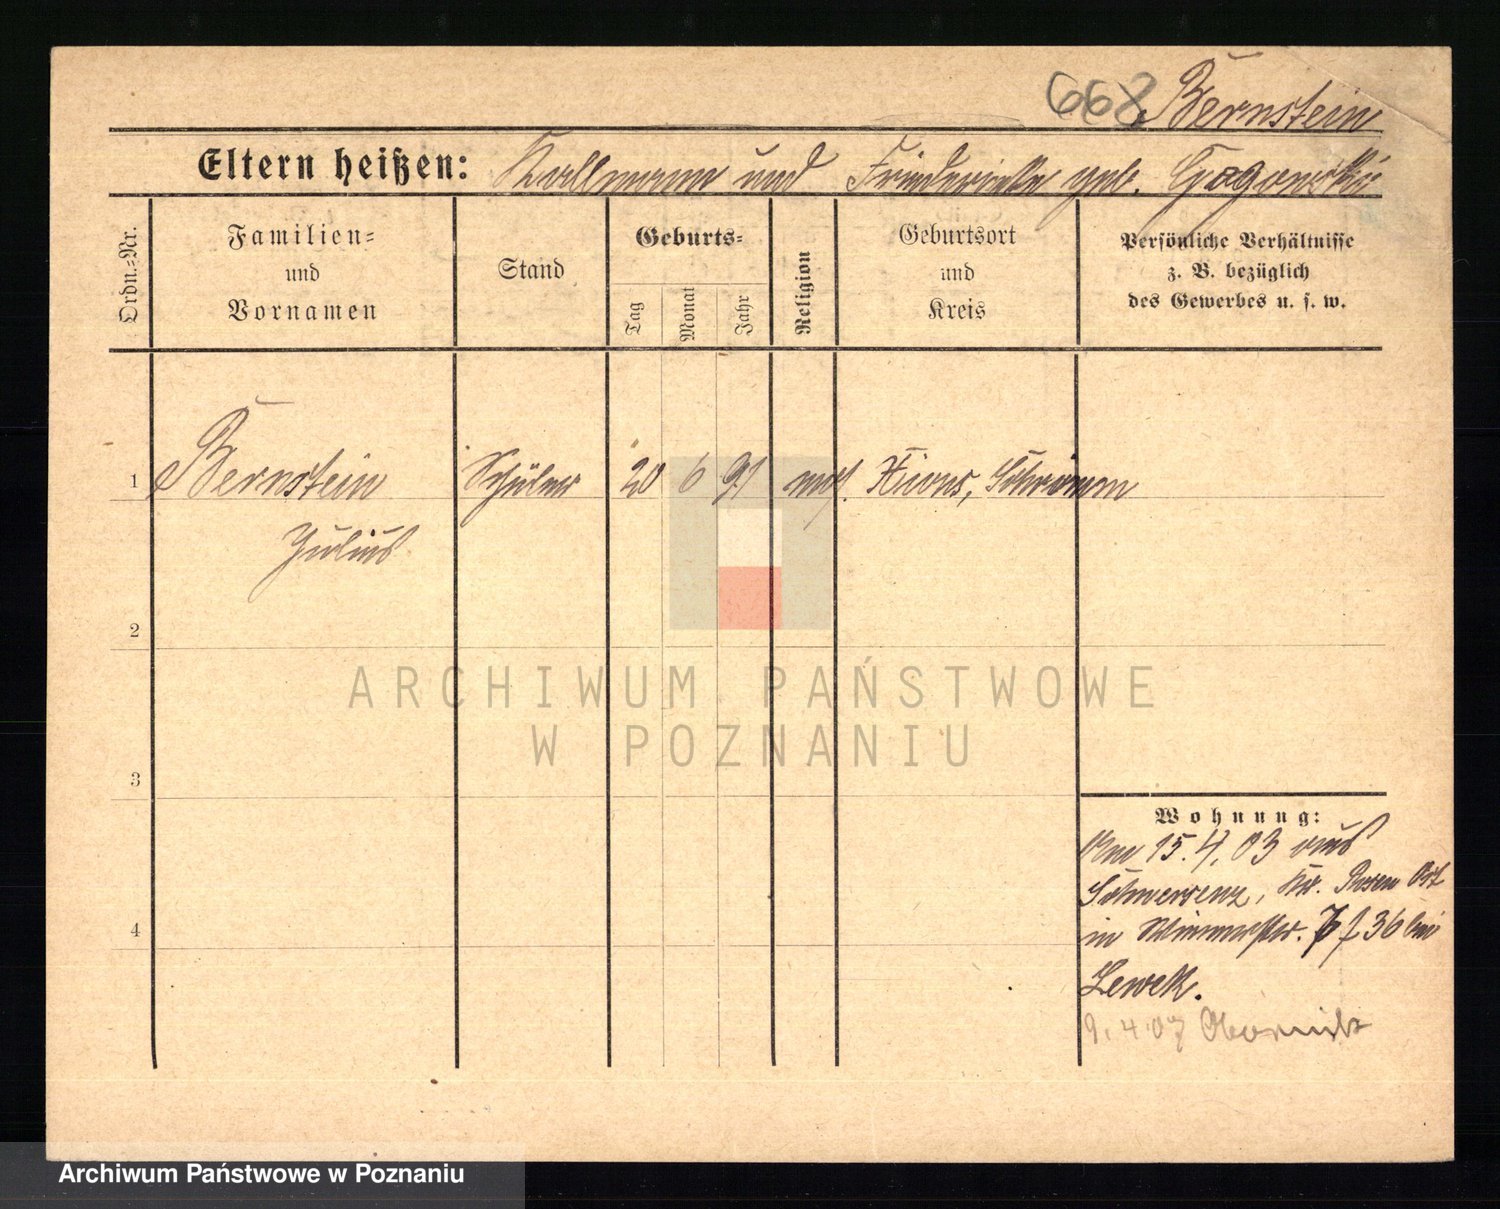 668 Bernstein
Eltern heißen: Kallmann und Friedericke geb. Gogonski
Ordn.-Nr.
Familien-
und
Vornamen
Stand
Geburts-
Tag
Monat
Jahr
Religion
Geburtsort
und
Kreis
Persönliche Verhältnisse
z. B. bezüglich
des Gewerbes u. s. w.
1 Bernstein Schüler 20 6 91 mos. Xions, Schrimm
Julius
2
ARCHIWUM PAŃSTWOWE
W POZNANIU
3
Wohnung:
Am 15. 4. 03 aus
Schwersenz, Kr. Posen Ost
in 36 bei
4
Lewek.
9. 4 07 Obornik
Archiwum Państwowe w Poznaniu